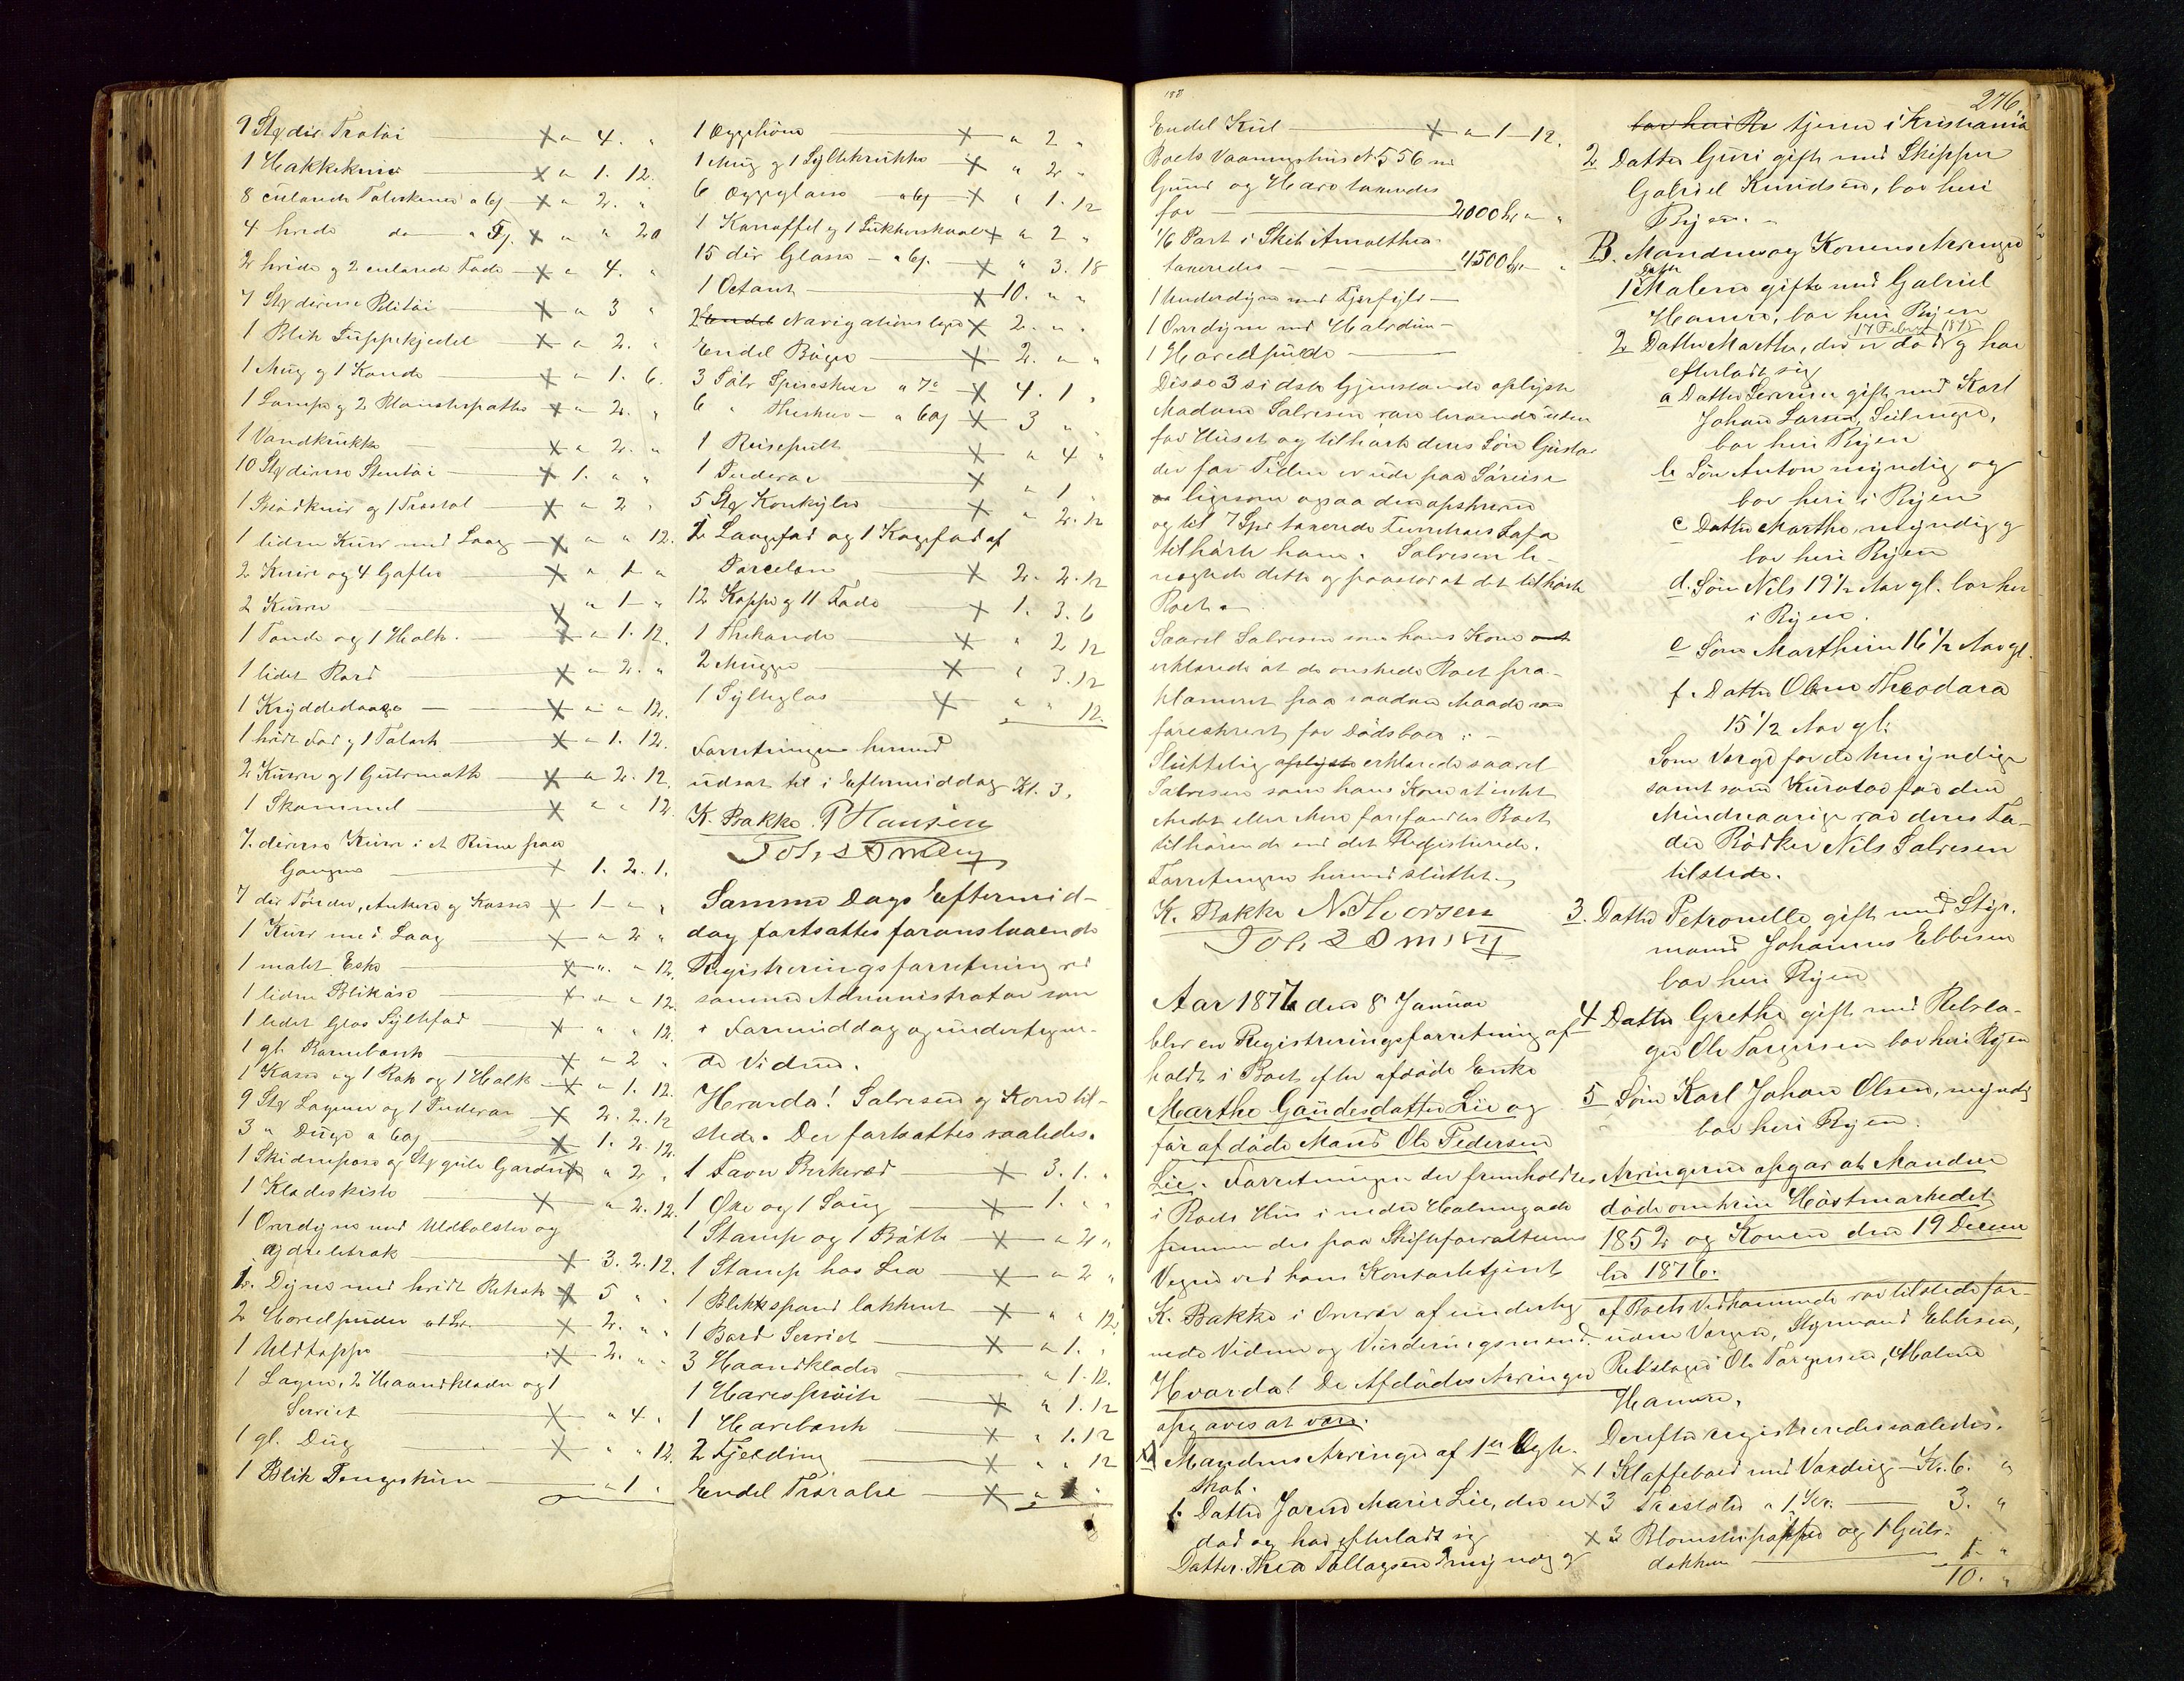 9 Stkr dir. Trøtøi × " 4. "
1 Hakkekniv × " 1. 12.
8 culørede Talerkener a 6 × " 2. "
4 hvide do × " " 20
2 hvide og 2 culørede Fade × " 4. "
7 Stkr diverse Blitøi × " 3 "
1 Blik Suppekjedel × " 2. "
1 Mug og 1 Kande × " 1. 6.
1 Lampe og 2 Blomsterpotter × " 2. "
1 Vandkrukke × " 2. "
10 Stkr diverse Stentøi × 1. " "
1 Brødkniv og 1 × " 2 "
1 liden Kurv med Laag × " " 12.
2 Knive og 4 Gafler × " 1 "
2 Kurve × " 1 "
1 Tønde og 1 Halv. × " 1. 12.
1 lidet Bord × " 2. "
1 Krydde × " " 12.
1 hvidt Fad og 1 Talerk × " 1. 12.
2 Kurve og 1 Gulvmatte × " 2. 12.
1 Skammel × " " 12.
7. diverse Kurve i et Rum paa
Gangen × 1. 2. 1.
7 dir Tønder, Ankere og Kasser × 1 " "
1 Kurv med Laag × " 2 "
1 malet Eske × " " 12.
1 liden Blikæske × " " 12.
1 lidet Glas Syltefad × " " 12.
1 gl. Barnebænk × " 2 "
1 Kasse og 1 og 1 Halv × " 1. 12.
9 Stkr Lagener og 1 Pudevar × 2. 2. 12
3 " Duge a 60 × 1. 2. 12.
1 Skidenpose og Stkr gule Gardin × " 2 "
1 Klædeskiste × " 2. 12.
1 Overdyne med Uldbolster og
× 3. 2. 12.
1. Dyne med hvidt × 5 " "
2 Hovedpuder × 2. " "
1 Uldtæppe × 2. " "
1 Lagen, 2 Haandklæder og 1
Serviet × " 4 "
1 gl. Dug × " " 12.
1 Blik Pengeskrin " 1 "
1 × " 2 "
1 Mug og 1 Syltekrukke × " 2 "
6 Æggeglasse × " 1. 12
1 Karaffel og 1 Sukkerskaal × " 2 "
15 dir Glasse × " 3. 18
1 Octant × 10. " "
2 Navigations × 2. " "
Endel Bøger × 2. " "
3 Sølv Spiseskeer × 4. 1 "
6 " Theskeer × 3 " "
1 Reisepult × " 4 "
1 Pudevar × " 1 "
5 Stkr Konkylier × " 2. 12
1 Laagfad og 1 Kagefad af
Porcelæn × 2. 2. 12
12 Kopper og 11 Fade × 1. 3. 6
1 Thekande × " 2 12
2 Mugge × " 3. 12
1 Sylteglas × " " 12.
Forretningen hermed
udsat til i Eftermiddag Kl. 3.
K. Bakke. P Hansen
Joh.
Samme Dags Eftermid-
dag fortsattes foranstaaende
Registreringsforretning ved
samme Administrator som
i Formiddag og undertegne-
de Vidner.
Hvorda! Salvesen og Kone til-
stede. Der fortsattes saaledes.
1 Favn Birkeved × 3. 1. "
1 Øxe og 1 Saug × 1. " "
1 Stamp og 1 Bøtte × " 2 "
1 Stamp hos Lea × " 2 "
1 Blikkspand lakkeret × " " 12.
1 Bord Serviet × " 1. "
3 Haandklæder " 1. 12.
1 Have × " 1. 12
1 Havebænk × " 1. 12
2 Fjelding × " " 12
Endel × "
188
Endel Kul × " 1 12.
Boets Vaaningshus N. 556 med
Grund og Have taxeredes
for 2000 kr " "
1/6 Part i Skib Amalthea
taxeredes 4500 kr "
1 Underdyne med Fjærfyld
1 Overdyne med Halvdun
1 Hovedpude
Disse 3 sidste Gjenstande oplyste
Madam Salvesen være beroende uden
for Huset og tilhørte deres Søn Gustav
der for Tiden er ude paa Søreise
ligesom ogsaa den opskrevne
og til 7 Spd taxerede Sofa
tilhørte ham. Salvesen be-
nægtede dette og paastod at det tilhørte
Boet.
Saavel Salvesen som hans Kone
erklærede at de ønskede Boet pro-
klameret paa saadan Maade som
foreskrevet for Dødsboer.
Sluttelig oplyste erklærede saavel
Salvesen som hans Kone at intet
Andet eller Mere forefandtes Boet
tilhørende end det Registrerede.
Forretningen hermed sluttet.
K. Bakke N. Thorsen
Joh.
Aar 1877 den 8 Januar
blev en Registreringsforretning af-
holdt i Boet efter afdøde Enke
Marthe Gaudesdatter Lie og
før afdøde Mand Ole Pedersen
Lie. Forretningen der fremholdtes
i Boets Hus i nedre Malmgade
fremmedes paa Skifteforvalterens
Vegne ved hans Kontorbetjent
K. Bakke i Overvær af underteg
nede Vidner og Vurderingsmænd.
Hvorda! De Afdødes Arvinger
opgaves at være.
A Mandens Arvinger af 1ste Ægte-
skab.
1. Datter Marie Lie, der er
død og har efterladt sig
Datter. Thea Tallagsen myndig og
276.
bor heri By tjener i Kristiania
2 Datter Guri gift med Skipper
Gabriel Knudsen, bor heri
Byen.
B. Mandens og Konens Arvinger
1 Datter Malene gift med Gabriel
Hansen, bor heri Byen
2 Datter Marthe, der er død 17 Februar 1875 og har
efterladt sig
a Datter Severine gift med Karl
Johan Larsen, Seilmager,
bor heri Byen
b Søn Anton myndig og
bor heri i Byen
c Datter Marthe, myndig og
bor heri Byen
d. Søn Nils 19½ Aar gl. bor her
i Byen.
e Søn Marthin 16½ Aar gl.
f. Datter Oline Theodora
15½ Aar gl.
Som Verge for de Umyndige
samt som Kurator for den
Mindreaarige var deres Fa-
der Bødker Nils Salvesen
tilstede.
3. Datter Petronelle gift med Styr-
mand Johannes Ebbesen
bor heri Byen
4 Datter Grethe gift med Rebsla-
ger Ole Torgersen bor heri Byen
5 Søn Karl Johan Olsen, myndig
bor heri Byen.
Arvingerne opgav at Manden
døde omkring Høstmarkedet
1852 og Konen den 19 Decem
ber 1876.
af Boets Vedkommende var tilstede for-
uden Vergen, Styrmand Ebbesen,
Rebslager Ole Torgersen, Malene
Hansen.
Derefter registreredes saaledes.
× 1 Klaffebord med Voxdug Kr. 6. "
× 3 Træstole a 1 Kr. 3. "
× 3 Blomsterpotter og 1 Gulv-
dækken 1. "
10. "